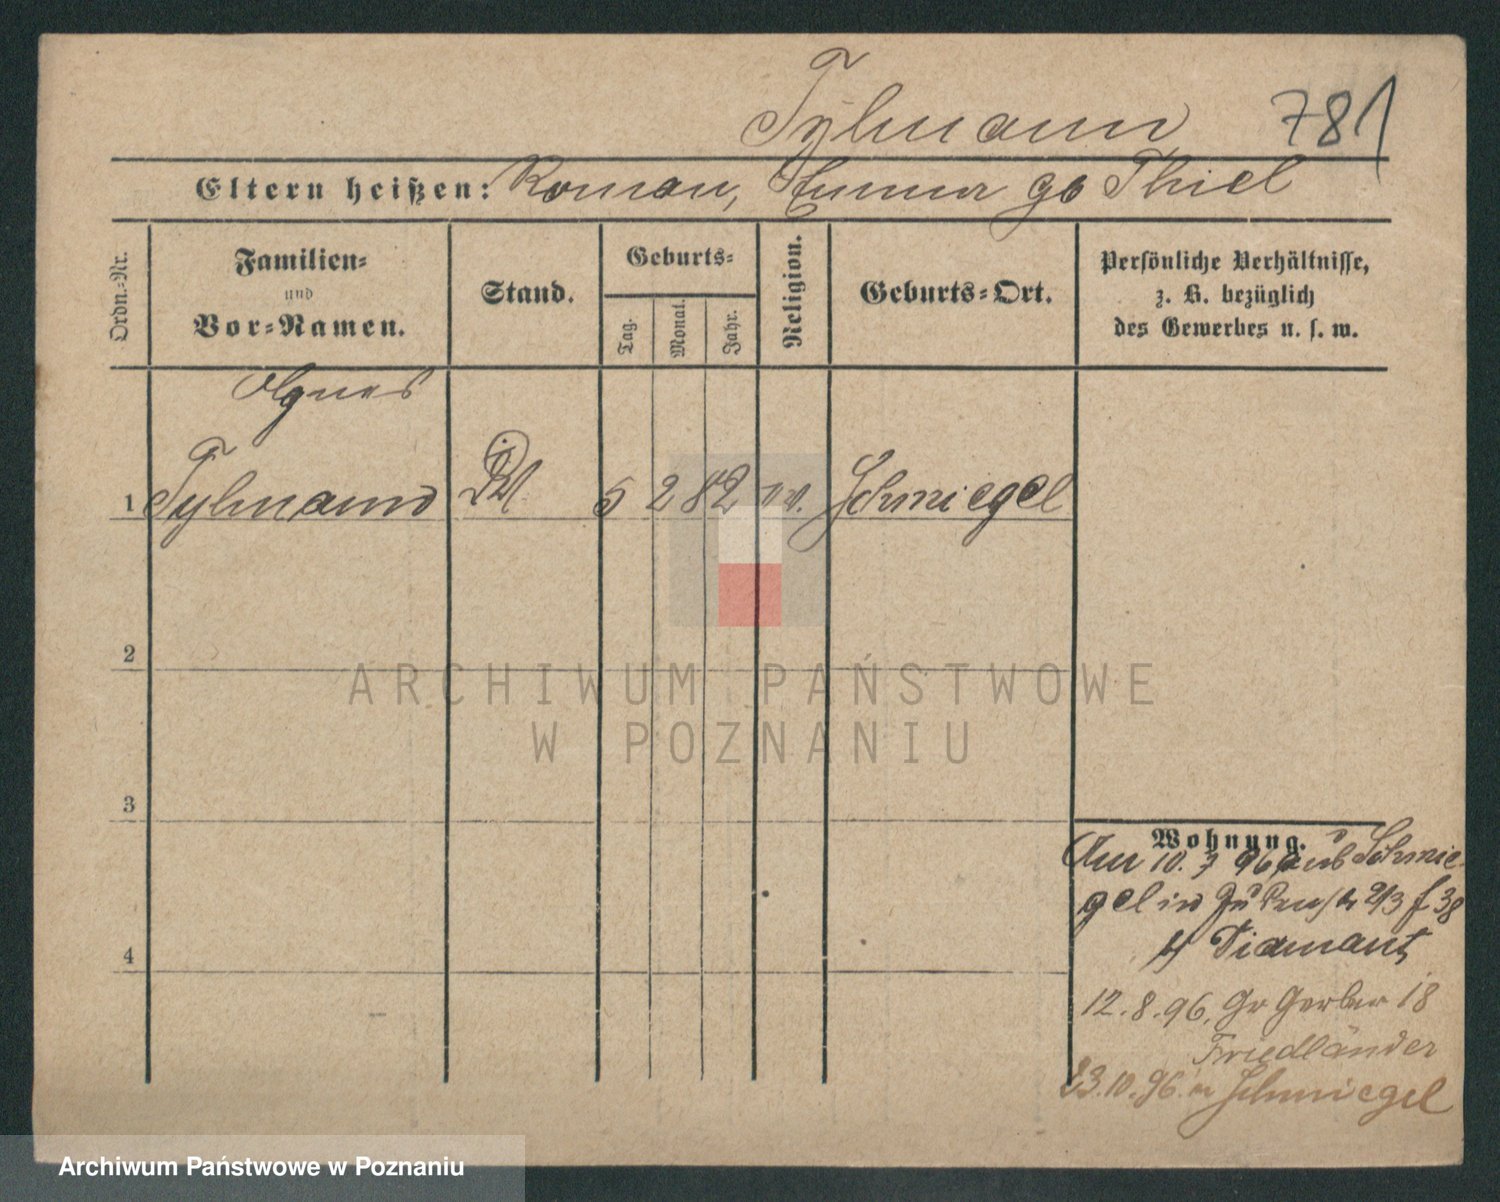 Tylmann 781
Eltern heißen: Roman, Emma gb Thiel
Ordn.-Nr.
Familien-
und
Vor-Namen.
Stand.
Geburts-
Tag.
Monat.
Jahr.
Religion.
Geburts-Ort.
Persönliche Verhältnisse,
z. B. bezüglich
des Gewerbes u. s. w.
Agnes
1 Tylmann 5 2 82 Schmiegel
2
3
4
ARCHIWUM PAŃSTWOWE
W POZNANIU
Wohnung.
Am 10. 3 96 aus Schmie-
gel in Judenstr 2/3 f 38
Diamant
12.8.96. Gr Gerber 18
Friedländer
23.10.96. n Schmiegel
Archiwum Państwowe w Poznaniu